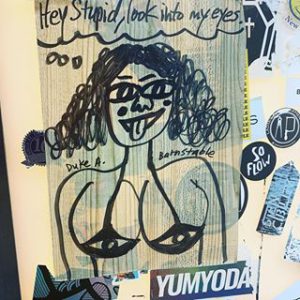 Hey Stupid, look into my eyes.
Duke A. Barnstable
SO
FLOW
AP
YUMYODA